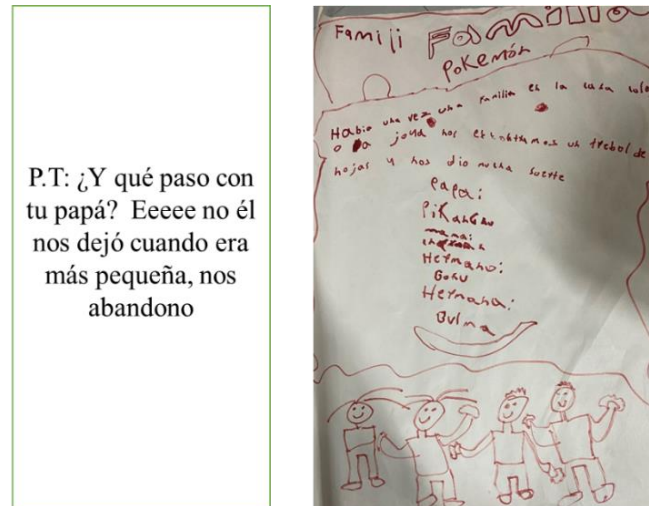 P.T: ¿Y qué paso con
tu papá? Eeeee no él
nos dejó cuando era
más pequeña, nos
abandono
Famili Familia
Pokemón
Habia una vez una familia en la casa
a joya nos encontramos un trebol de
hojas y nos dio mucha suerte
Papa:
Pikanchu
mama:
Hermano:
Goku
Hermana:
Bulma